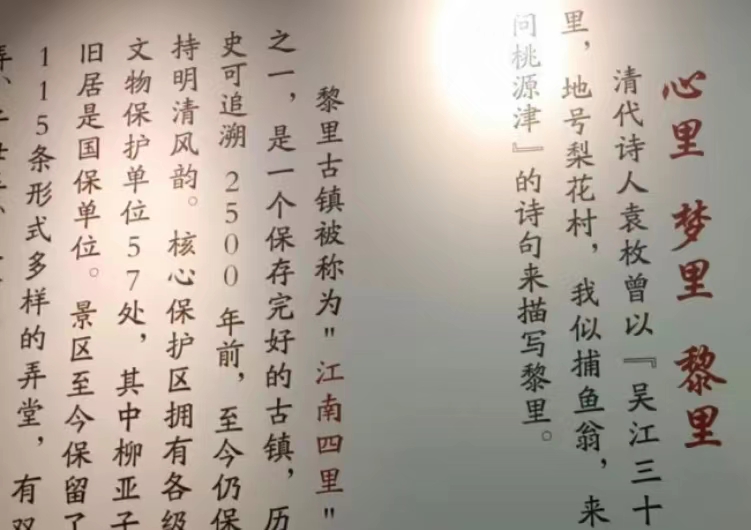 心里 梦里 黎里
清代诗人袁枚曾以『吴江三十
里，地号梨花村，我似捕鱼翁，来
问桃源津』的诗句来描写黎里。
黎里古镇被称为"江南四里"
之一，是一个保存完好的古镇，历
史可追溯 2500 年前，至今仍保
持明清风韵。核心保护区拥有各级
文物保护单位57处，其中柳亚子
旧居是国保单位。景区至今保留了
115条形式多样的弄堂，有双
弄、